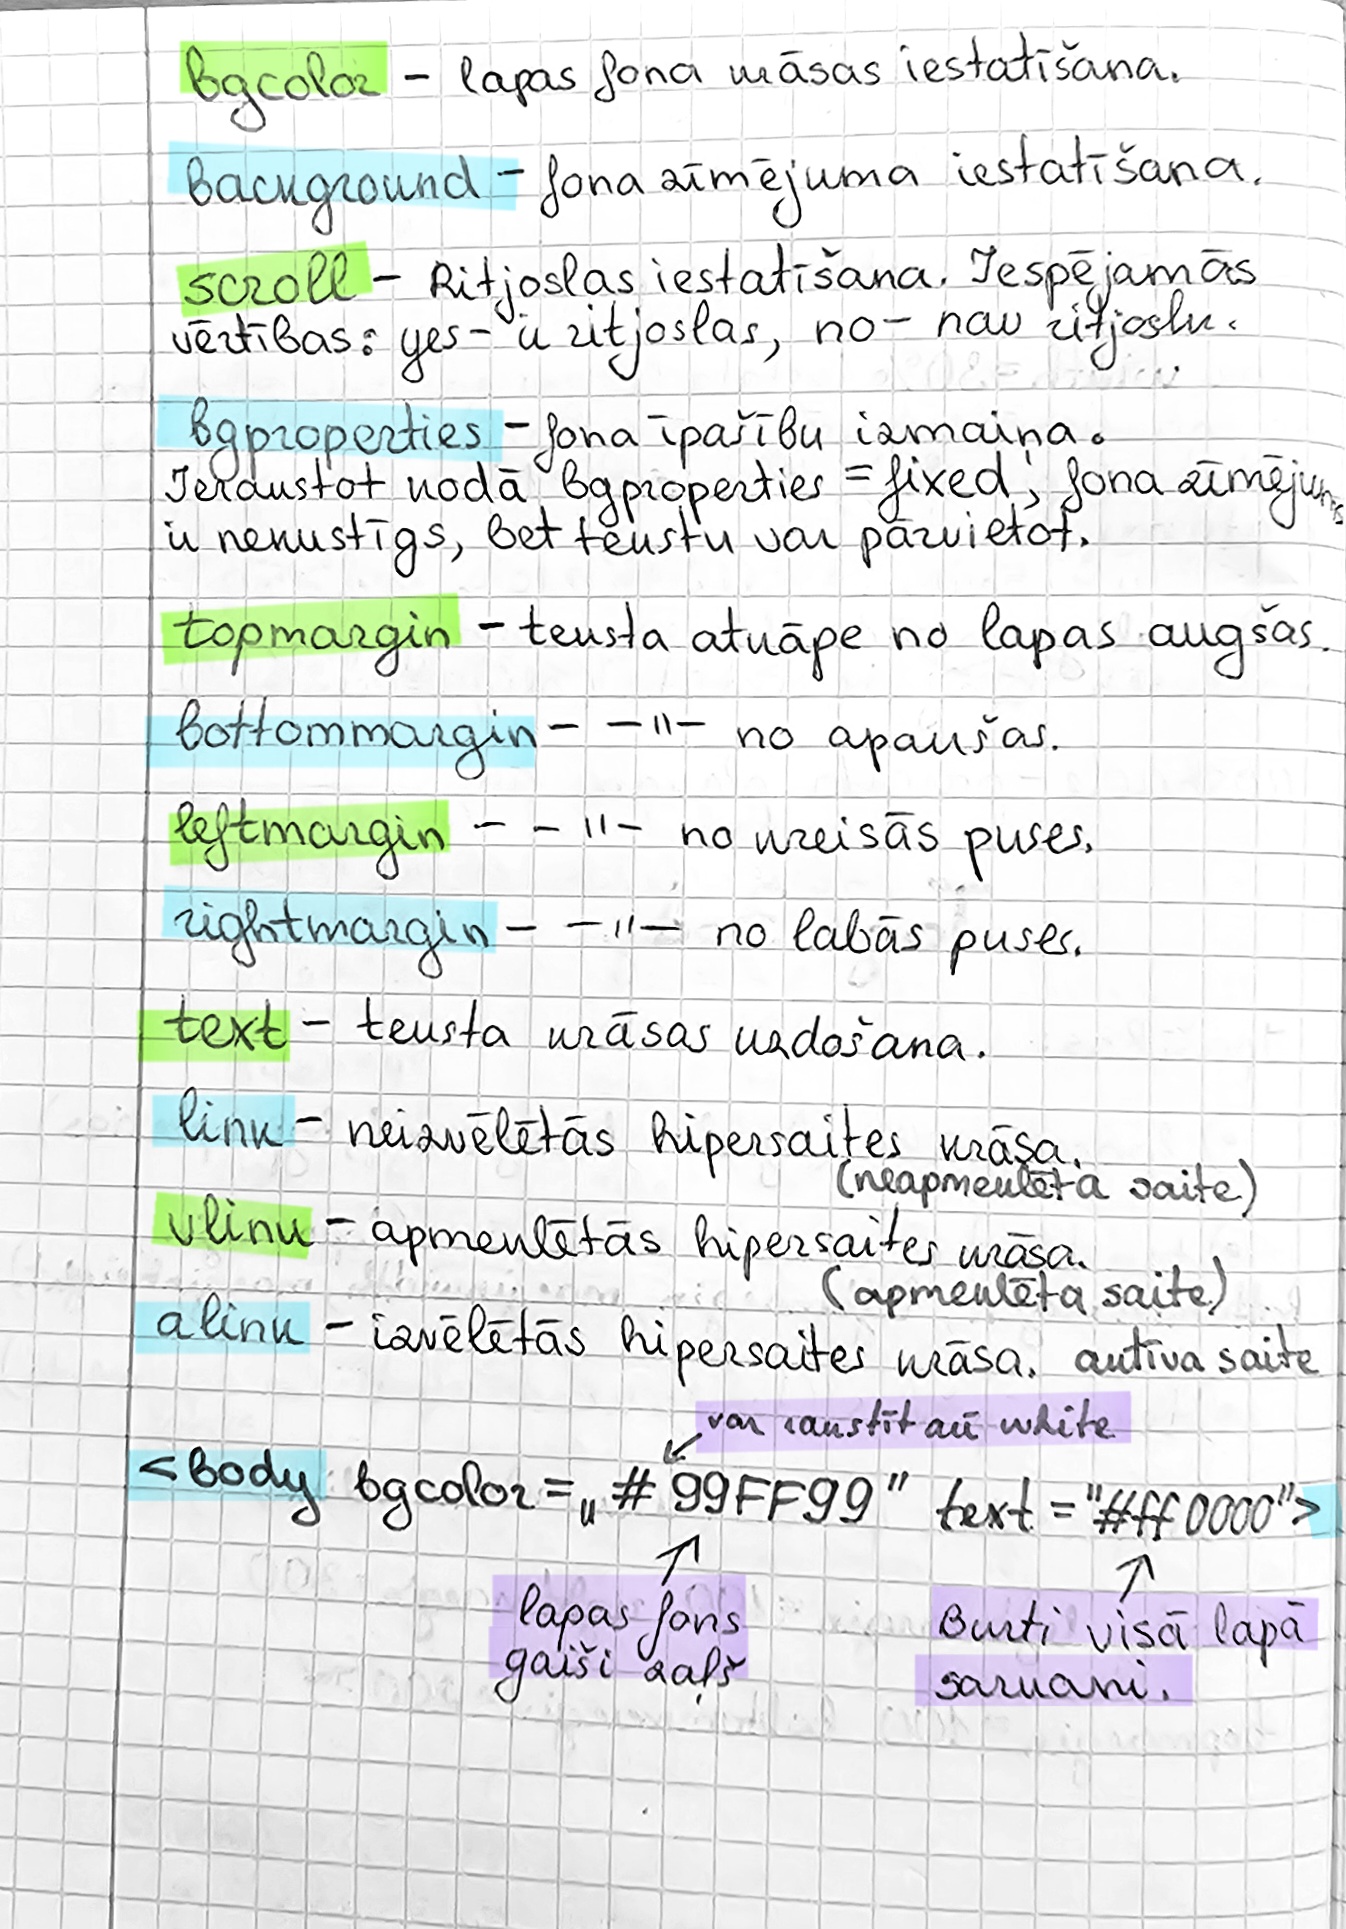 bgcolor – lapas fona krāsas iestatīšana.
background – fona zīmējuma iestatīšana.
scroll – Ritjoslas iestatīšana. Iespējamās
vērtības: yes – ir ritjoslas, no – nav ritjoslu.
bgproperties – fona īpašību izmaiņa.
Ierakstot kodā bgproperties = fixed; fona zīmējums
ir nekustīgs, bet tekstu var pārvietot.
topmargin – teksta atkāpe no lapas augšas.
bottommargin – –"– no apakšas.
leftmargin – –"– no kreisās puses.
rightmargin – –"– no labās puses.
text – teksta krāsas uzdošana.
link – neizvēlētās hipersaites krāsa.
(neapmeklēta saite)
vlink – apmeklētās hipersaites krāsa.
(apmeklēta saite)
alink – izvēlētās hipersaites krāsa. aktīva saite
var rakstīt arī white
<body bgcolor = „#99FF99" text = "#ff0000">
lapas fons
gaiši zaļš
Burti visā lapā
sarkani.